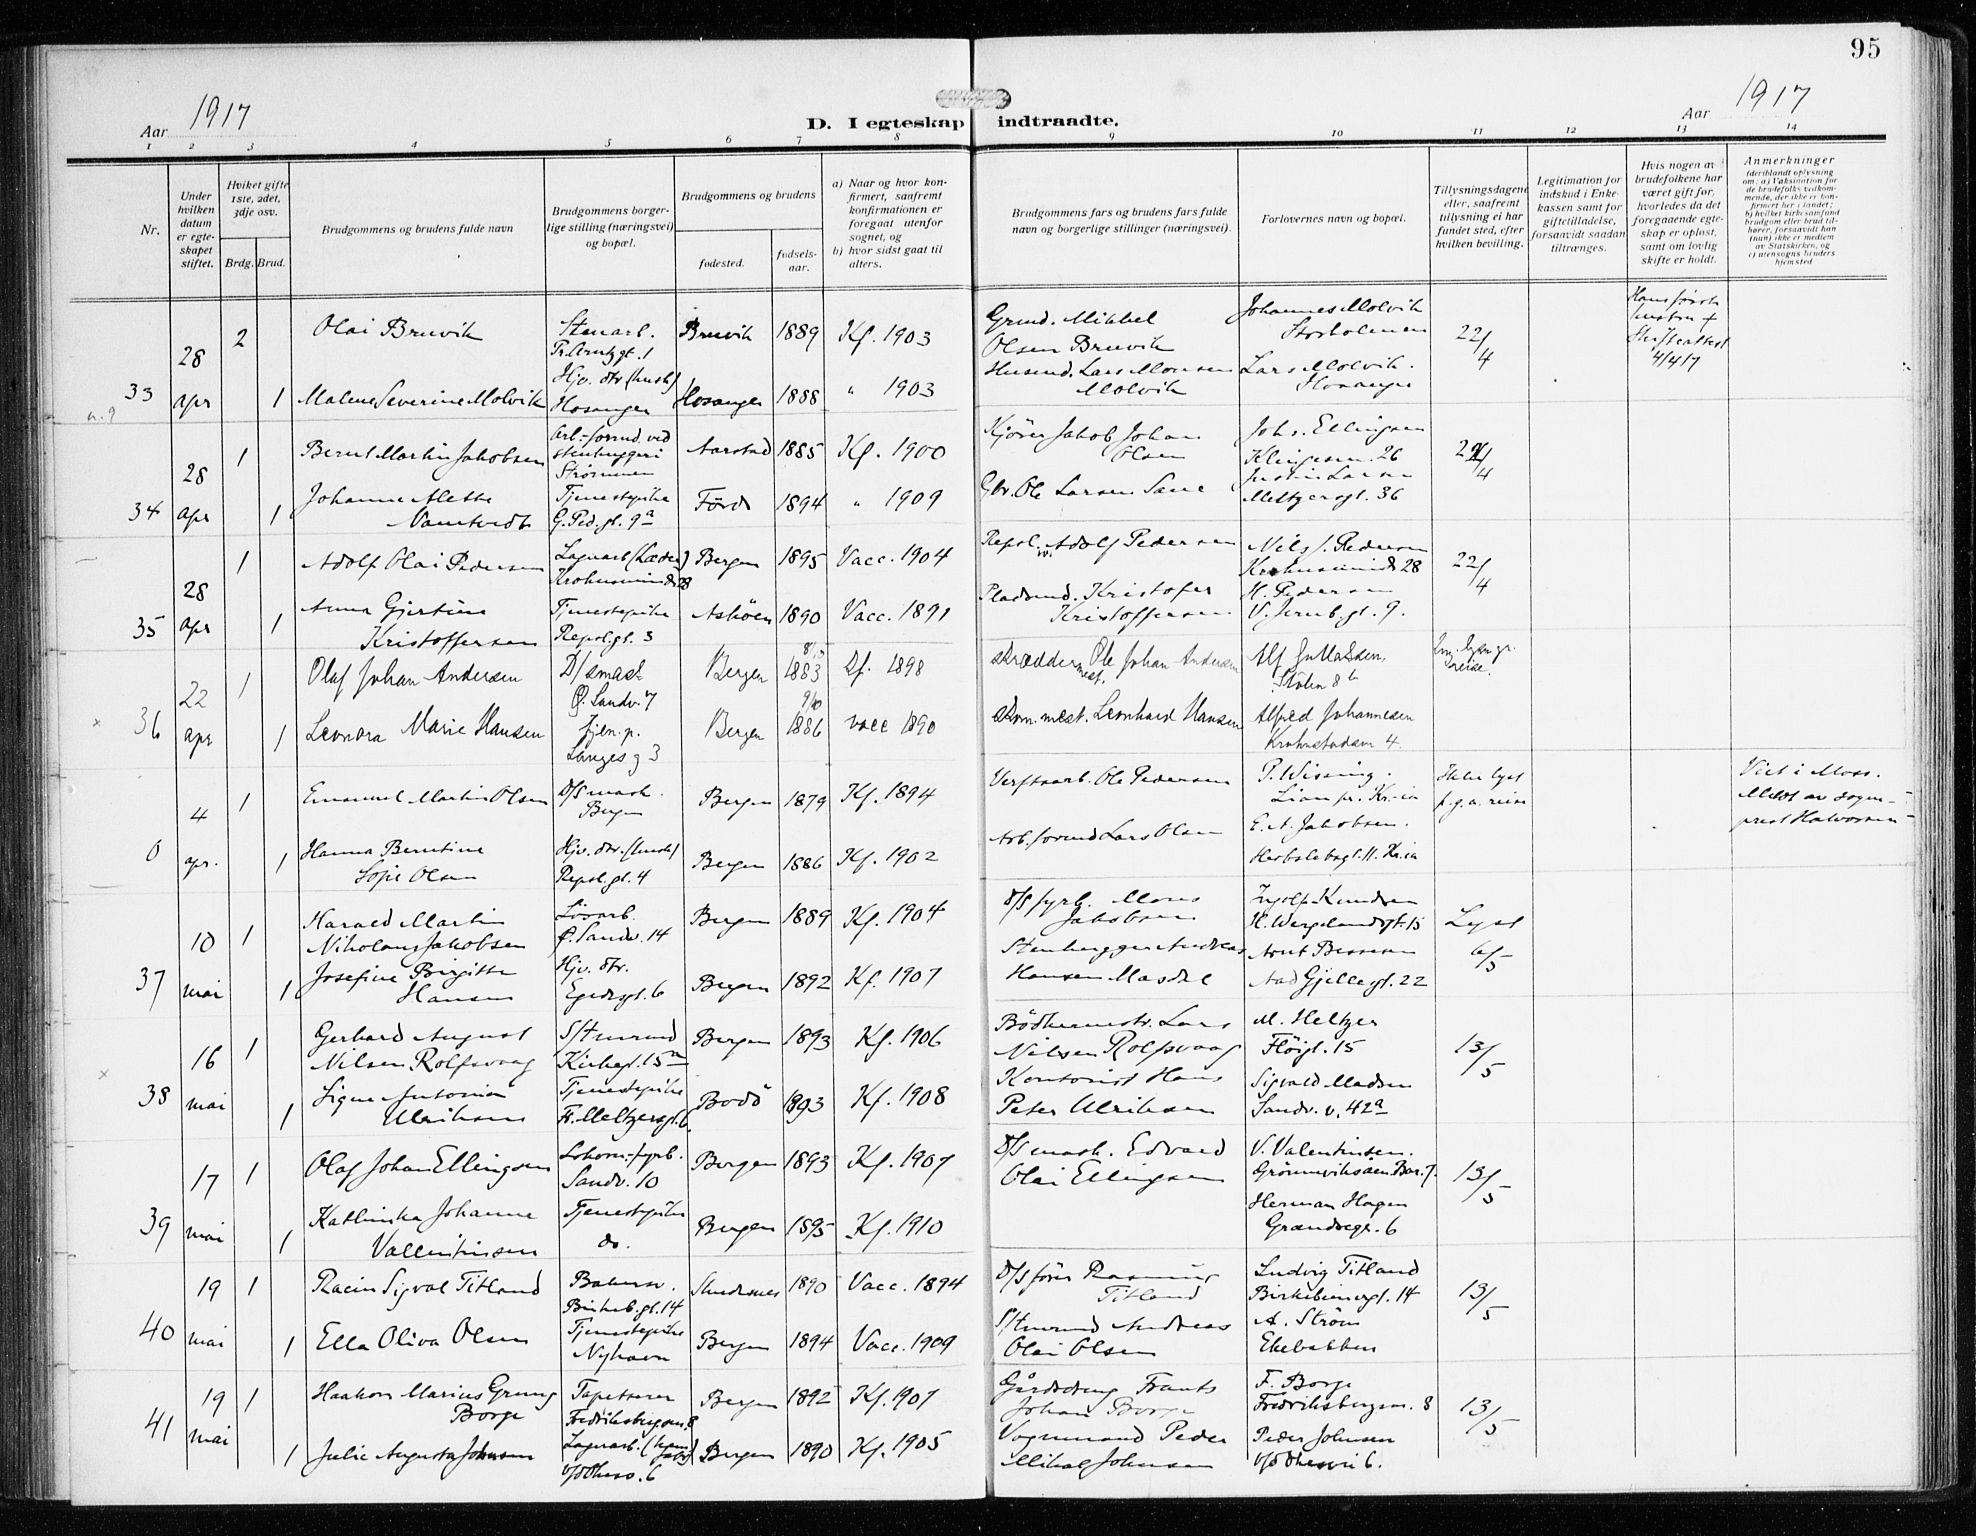 95
Aar 1917
D. I egteskap indtraadte.
Aar 1917
1 2 3 4 5 6 7 8 9 10 11 12 13 14
Nr.
Under hvilken datum er egteskapet stiftet.
Hviket gifte 1ste, 2det, 3dje osv.
Brdg. Brud.
Brudgommens og brudens fulde navn
Brudgommens borgerlige stilling (næringsvei) og bopæl.
Brudgommens og brudens
fødested.
fødselsaar.
a) Naar og hvor konfirmert, saafremt konfirmationen er foregaat utenfor sognet, og
b) hvor sidst gaat til alters.
Brudgommens fars og brudens fars fulde navn og borgerlige stillinger (næringsvei).
Forlovernes navn og bopæl.
Tillysningsdagene eller, saafremt tillysning ei har fundet sted, efter hvilken bevilling.
Legitimation for indskud i Enkekassen samt for giftetilladelse, forsaavidt saadan tiltrænges.
Hvis nogen av brudefolkene har været gift før, hvorledes da det foregaaende egteskap er opløst, samt om lovlig skifte er holdt.
Anmerkninger
(deriblandt oplysning om: a) Vaksination for de brudefolks vedkommende, der ikke er konfirmert her i landet; b) hvilket kirkesamfund brudgom eller brud tilhører, forsaavidt han (hun) ikke er medlem av Statskirken, og c) utensogns bruders hjemsted
33 28 apr 2 Olai Bruvik Stenarb. Bruvik 1889 Kf. 1903 Grmd. Mikkel Olsen Bruvik Johannes Molvik Storholmen 22/4
4/4 17
1 Malene Severine Molvik Hjv. dtr. (hush) Hosanger Hosanger 1888 " 1903 Husmd. Lars Monsen Molvik Lars Molvik. Hosanger
34 28 apr 1 Bernt Martin Jakobsen Arb.-formd. ved stenhuggeri Strømmen Aarstad 1885 Kf. 1900 Kjører Jakob Johan Olsen Joh s. Ellingsen 26 /4
1 Johanne Alette Tjenestepike G. Ped. gt. 9a Førde 1894 " 1909 Gbr. Ole Larsen Justin Larsen Meltzersgt. 36
35 28 apr 1 Adolf Olai Pedersen Lagerarb (Læder) 28 Bergen 1895 Vacc. 1904 Adolf Pedersen Nils J. Pedersen 28 22/4
1 Anna Gjertine Kristoffersen Tjenestepike Repsl.gt. 3 Askøen 1890 Vacc. 1891 Pladsmd. Kristofer Kristoffersen H. Pedersen V. Jernb.gt. 9.
36 22 apr 1 Olaf Johan Andersen D/S mask Ø. Sandv. 7 Bergen 1883 Df. 1898 Skræddermest. Ole Johan Andersen Alf Stølen 8b reise.
1 Leonora Marie Hansen Tjen. p. Langes g 3 Bergen 9/10 1886 vacc 1890 Skom. mest. Leonhard Hansen Alfred Johannesen 4.
0 4 apr. 1 Emanuel Martin Olsen D/S mask. Bergen Bergen 1879 Kf. 1894 Verftsarb. Ole Pedersen P. Wissing. Lian pr. Kr.ia Ikke lyst p.g.a. reise Viet i Moss. Meldt av sogneprest Halvorsen
1 Hanna Berntine Sofie Olsen Hjv. dtr. (hush) Repsl.gt. 4 Bergen 1886 Kf. 1902 Arb. formd Lars Olsen E. A. Jakobsen. 11. Kr.ia
37 10 mai 1 Harald Martin Nikolaus Jakobsen Løsarb. Ø. Sandv. 14 Bergen 1889 Kf. 1904 D/S fyrb. Mons Jakobsen Ingolf Knudsen H. Wergelandsgt. 15 Lyst 6/5
1 Josefine Birgitte Hansen Hjv. dtr. Egedesgt. 6 Bergen 1892 Kf. 1907 Stenhugger Andreas Hansen Masdal Arnt Aad Gjelles gt. 22
38 16 mai 1 Gerhard August Nilsen Rolfsvaag S/tmrmd Kirkegt. 15a Bergen 1893 Kf. 1906 Bødkermestr. Lars Nilsen Rolfsvaag M. Heltzer Fløigt. 15 13/5
1 Signe Antonie Ulriksen Tjenestepike F. Meltzersgt. 6 Bodø 1893 Kf. 1908 Kontorist Hans Peter Ulriksen Sigvald Madsen Sandv. v. 42a
39 17 mai 1 Olaf Johan Ellingsen Lokom.-fyrb. Sandv. 10 Bergen 1893 Kf. 1907 D/S mask. Edvard Olai Ellingsen V. Valentinsen. 13/5
1 Kathinka Johanne Vallentinsen Tjenestepike do. Bergen 1895 Kf. 1910 Herman Hagen 6
40 19 mai 1 Racin Sigval Titland Birkeb.gt. 14 Skudesnes 1890 Vacc. 1894 D/S fører Rasmus Titland Ludvig Titland Birkebeinergt. 14 13/5
1 Ella Oliva Olsen Tjenestepike Nyhavn Bergen 1894 Vacc. 1909 S/tmrmd Andreas Olai Olsen A. Strøm Ekebakken
41 19 mai 1 Haakon Marius Grung Borge Tapetserer 8 Bergen 1892 Kf. 1907 Frants Johan Borge F. Borge Fredriksbergsn. 8 13/5
1 Julie Augusta Johnsen Lagerarb. 6 Bergen 1890 Kf. 1905 Vognmand Peder Mikal Johnsen Peder Johnsen 6.